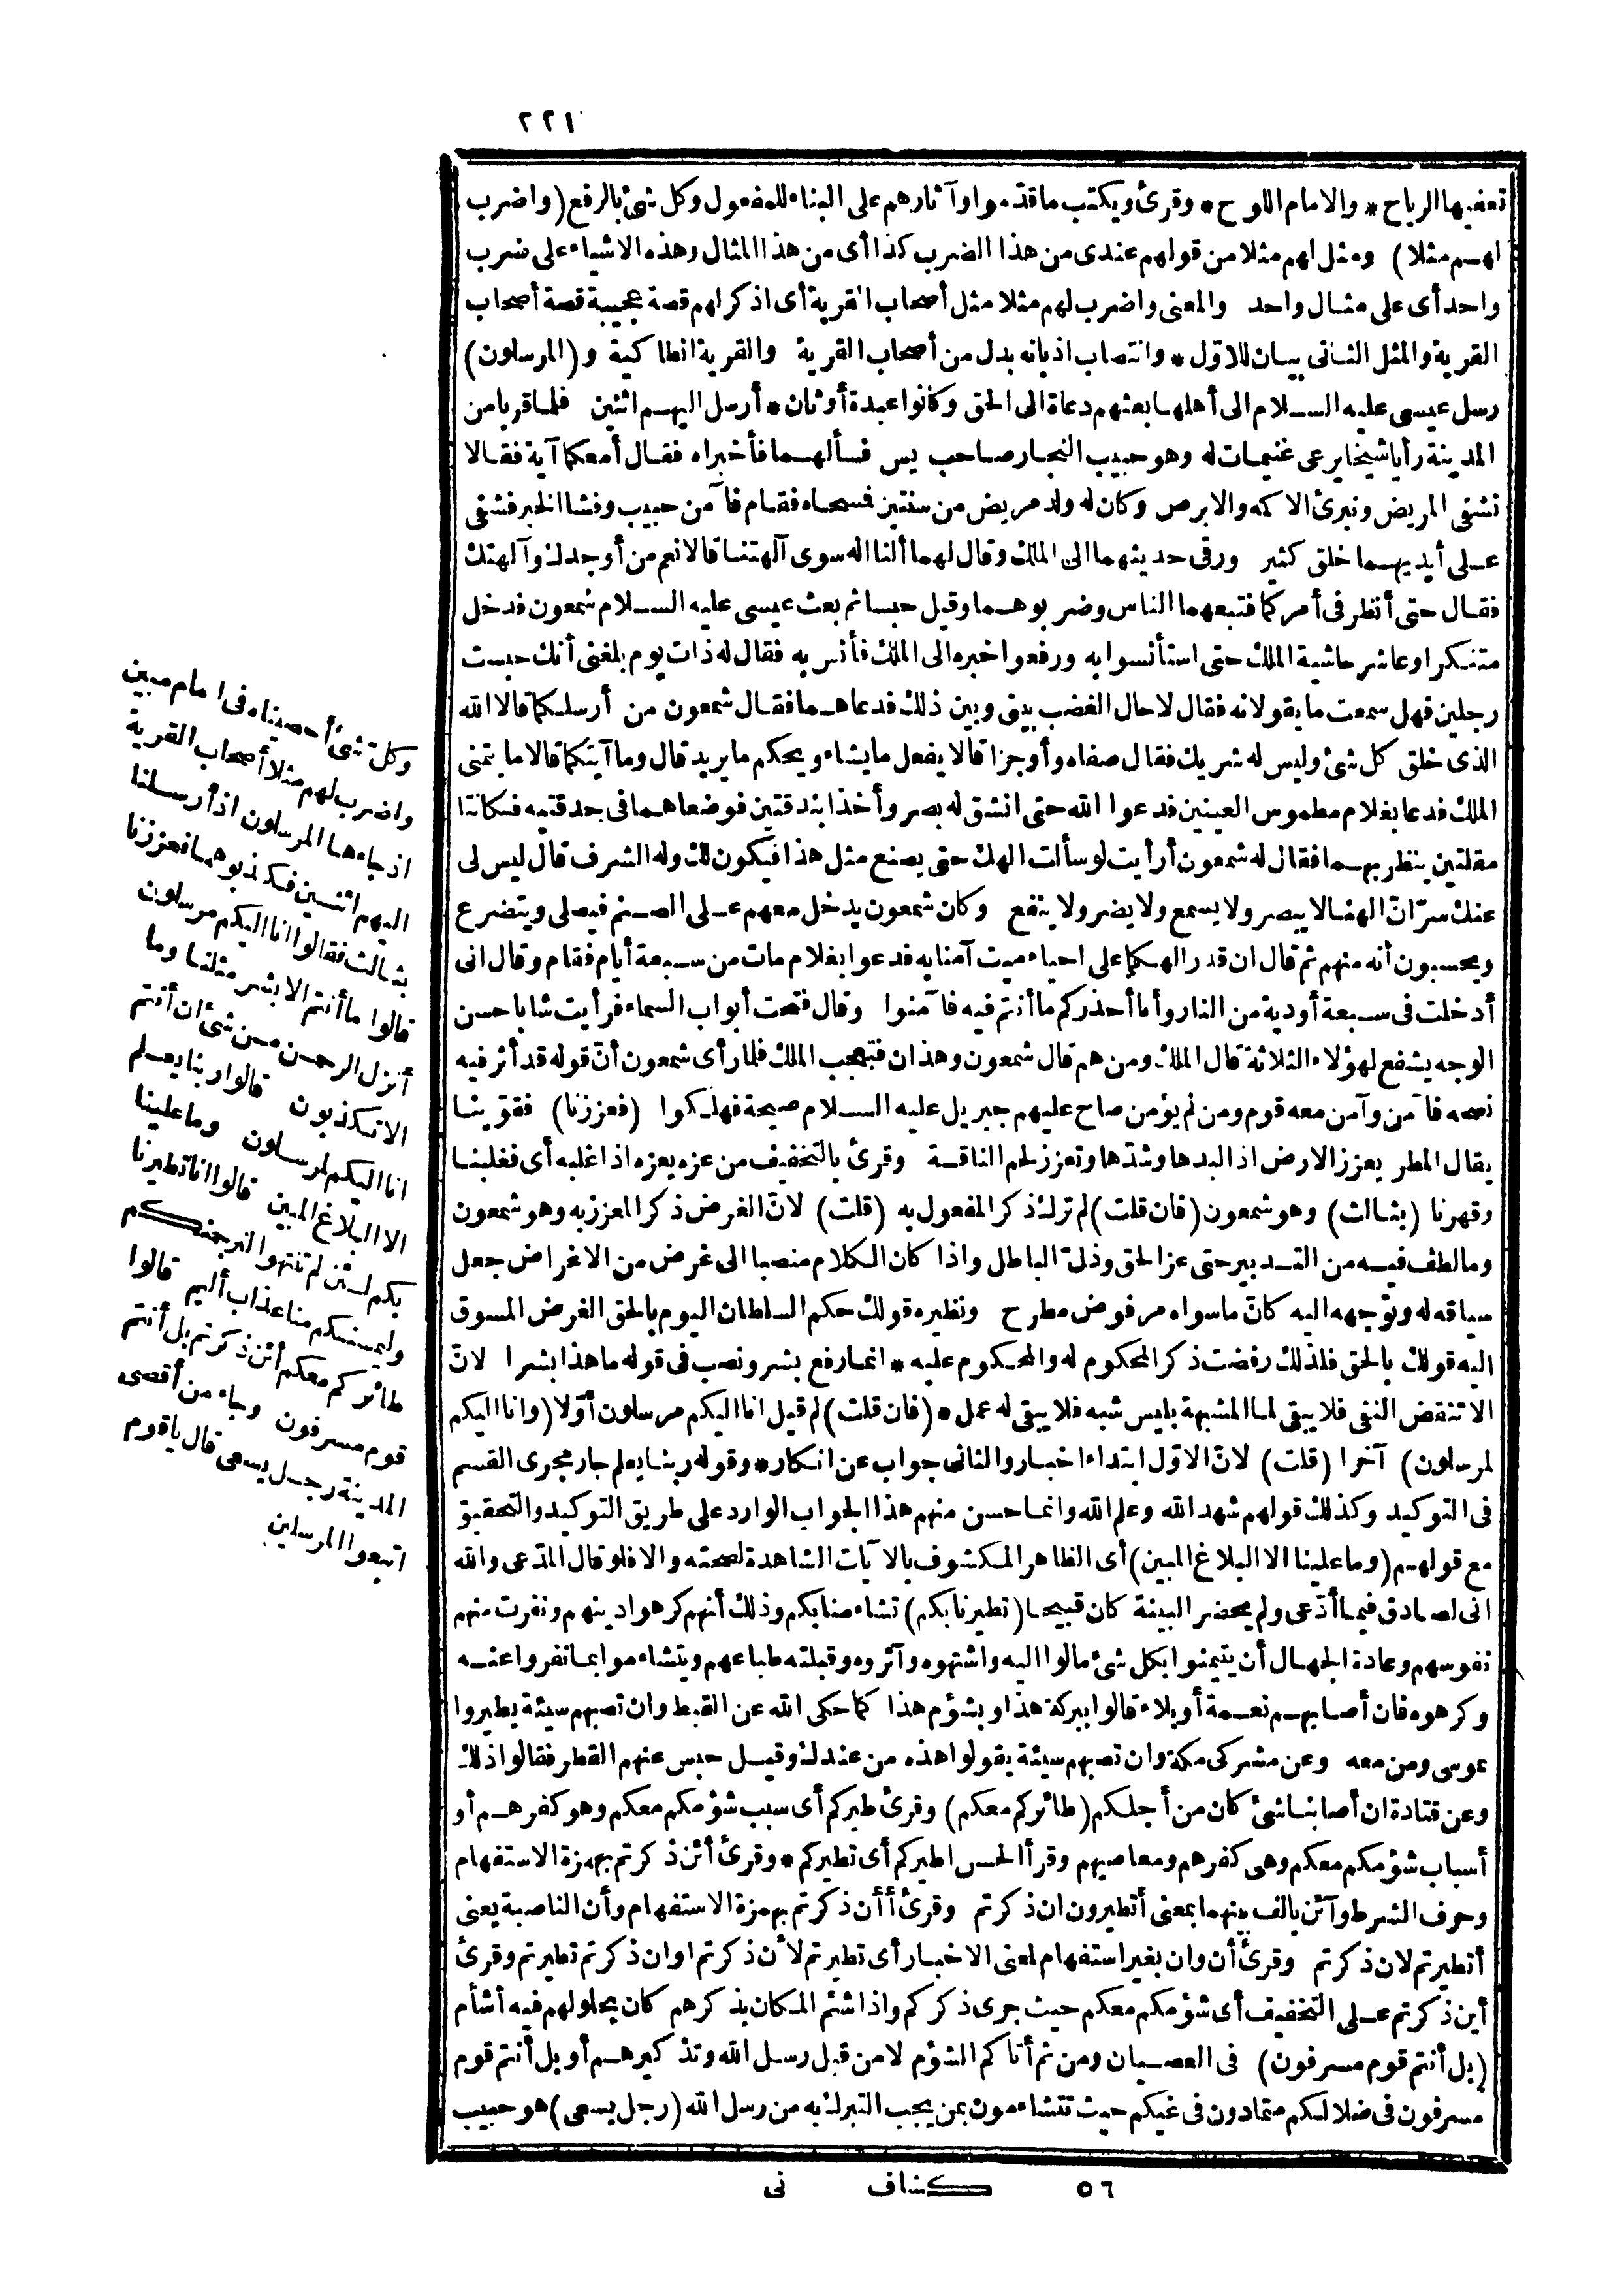 ٢٢١
تعفيها الرياح * والامام اللوح * وقرئ ويكتب ما قدّموا وآثارهم على البناء للمفعول وكل شئ بالرفع (واضرب
لهم مثلا) ومثل لهم مثلا من قولهم عندى من هذا الضرب كذا أى من هذا المثال وهذه الاشياء على ضرب
واحد أى على مثال واحد والمعنى واضرب لهم مثلا مثل أصحاب القرية أى اذكر لهم قصة عجيبة قصة أصحاب
القرية والمثل الثانى بيان للاوّل * وانتصاب اذ بانه بدل من أصحاب القرية والقرية انطاكية و (المرسلون)
رسل عيسى عليه السلام الى أهلها بعثهم دعاة الى الحق وكانوا عبدة أوثان * أرسل اليهم اثنين فلما قربا من
المدينة رأيا شيخا يرعى غنيمات له وهو حبيب النجار صاحب يس فسألهما فأخبراه فقال أمعكما آية فقالا
نشفى المريض ونبرئ الاكمه والابرص وكان له ولد مريض من سنتين فمسحاه فقام فآمن حبيب وفشا الخبر فشفى
على أيديهما خلق كثير ورقى حديثهما الى الملك وقال لهما ألنا اله سوى آلهتنا قالا نعم من أوجدك وآلهتك
فقال حتى أنظر فى أمركما فتبعهما الناس وضربوهما وقيل حبسا ثم بعث عيسى عليه السلام شمعون فدخل
متنكرا وعاشر حاشية الملك حتى استأنسوا به ورفعوا خبره الى الملك فأنس به فقال له ذات يوم بلغنى أنك حبست
رجلين فهل سمعت ما يقولانه فقال لا حال الغضب بينى وبين ذلك فدعاهما فقال شمعون من أرسلكما قالا الله
الذى خلق كل شئ وليس له شريك فقال صفاه وأوجزا قالا يفعل ما يشاء ويحكم ما يريد قال وما آيتكما قالا ما يتمنى
الملك فدعا بغلام مطموس العينين فدعوا الله حتى انشق له بصر وأخذا بندقتين فوضعاهما فى حدقتيه فكانتا
مقلتين ينظر بهما فقال له شمعون أرأيت لو سألت الهك حتى يصنع مثل هذا فيكون لك وله الشرف قال ليس لى
عنك سرّ انّ الهنا لا يبصر ولا يسمع ولا يضر ولا ينفع وكان شمعون يدخل معهم على الصنم فيصلى ويتضرع
ويحسبون أنه منهم ثم قال ان قدر الهكما على احياء ميت آمنا به فدعوا بغلام مات من سبعة أيام فقام وقال انى
أدخلت فى سبعة أودية من النار وأنا أحذركم ما أنتم فيه فآمنوا وقال فتحت أبواب السماء فرأيت شابا حسن
الوجه يشفع لهؤلاء الثلاثة قال الملك ومن هم قال شمعون وهذان فتعجب الملك فلما رأى شمعون أنّ قوله قد أثر فيه
نصحه فآمن وآمن معه قوم ومن لم يؤمن صاح عليهم جبريل عليه السلام صيحة فهلكوا (فعززنا) فقوّينا
يقال المطر يعزز الارض اذا لبدها وشدّها وتعزز لحم الناقة وقرئ بالتخفيف من عزه يعزه اذا غلبه أى فغلبنا
وقهرنا (بثالث) وهو شمعون (فان قلت) لم ترك ذكر المفعول به (قلت) لانّ الغرض ذكر المعزز به وهو شمعون
وما لطف فيه من التدبير حتى عز الحق وذلّ الباطل واذا كان الكلام منصبا الى غرض من الاغراض جعل
سياقه له وتوجهه اليه كانّ ما سواه مرفوض مطرح ونظيره قولك حكم السلطان اليوم بالحق الغرض المسوق
اليه قولك بالحق فلذلك رفضت ذكر المحكوم له والمحكوم عليه * انما رفع بشر ونصب فى قوله ما هذا بشرا لانّ
الا تنقض النفى فلا يبقى لما المشبهة بليس شبه فلا يبقى له عمل * (فان قلت) لم قيل انا اليكم مرسلون أوّلا (وانا اليكم
لمرسلون) آخرا (قلت) لانّ الاوّل ابتداء اخبار والثانى جواب عن انكار * وقوله ربنا يعلم جار مجرى القسم
فى التوكيد وكذلك قولهم شهد الله وعلم الله وانما حسن منهم هذا الجواب الوارد على طريق التوكيد والتحقيق
مع قولهم (وما علينا الا البلاغ المبين) أى الظاهر المكشوف بالآيات الشاهدة لصحته والا فلو قال المدّعى والله
انى لصادق فيما أدّعى ولم يحضر البينة كان قبيحا (تطيرنا بكم) تشاءمنا بكم وذلك أنهم كرهوا دينهم ونفرت منهم
نفوسهم وعادة الجهال أن يتيمنوا بكل شئ مالوا اليه واشتهوه وآثروه وقبلته طباعهم ويتشاءموا بما نفروا عنه
وكرهوه فان أصابهم نعمة أو بلاء قالوا ببركة هذا وبشؤم هذا كما حكى الله عن القبط وان تصبهم سيئة يطيروا
بموسى ومن معه وعن مشركى مكة وان تصبهم سيئة يقولوا هذه من عندك وقيل حبس عنهم القطر فقالوا ذلك
وعن قتادة ان أصابنا شئ كان من أجلكم (طائركم معكم) وقرئ طيركم أى سبب شؤمكم معكم وهو كفرهم أو
أسباب شؤمكم معكم وهى كفرهم ومعاصيهم وقرأ الحسن اطيركم أى تطيركم * وقرئ أئن ذكرتم بهمزة الاستفهام
وحرف الشرط وآئن بالف بينهما بمعنى أتطيرون ان ذكرتم وقرئ أأن ذكرتم بهمزة الاستفهام وأن الناصبة يعنى
أتطيرتم لان ذكرتم وقرئ أن وان بغير استفهام لمعنى الاخبار أى تطيرتم لأن ذكرتم أو ان ذكرتم تطيرتم وقرئ
أين ذكرتم على التخفيف أى شؤمكم معكم حيث جرى ذكركم واذا شئم المكان بذكرهم كان بحلولهم فيه أشأم
(بل أنتم قوم مسرفون) فى العصيان ومن ثم أتاكم الشؤم لا من قبل رسل الله وتذكيرهم أو بل أنتم قوم
مسرفون فى ضلالكم متمادون فى غيكم حيث تتشاءمون بمن يجب التبرك به من رسل الله (رجل يسعى) هو حبيب
وكلّ شئ أحصيناه فى امام مبين
واضرب لهم مثلا أصحاب القرية
اذ جاءها المرسلون اذ أرسلنا
اليهم اثنين فكذبوهما فعززنا
بثالث فقالوا انا اليكم مرسلون
قالوا ما أنتم الا بشر مثلنا وما
أنزل الرحمن من شئ ان أنتم
الا تكذبون قالوا ربنا يعلم
انا اليكم لمرسلون وما علينا
الا البلاغ المبين قالوا انا تطيرنا
بكم لئن لم تنتهوا لنرجمنكم
وليمسنكم منا عذاب أليم قالوا
طائركم معكم أئن ذكرتم بل أنتم
قوم مسرفون وجاء من أقصى
المدينة رجل يسعى قال يا قوم
اتبعوا المرسلين
٥٦ كشاف نى